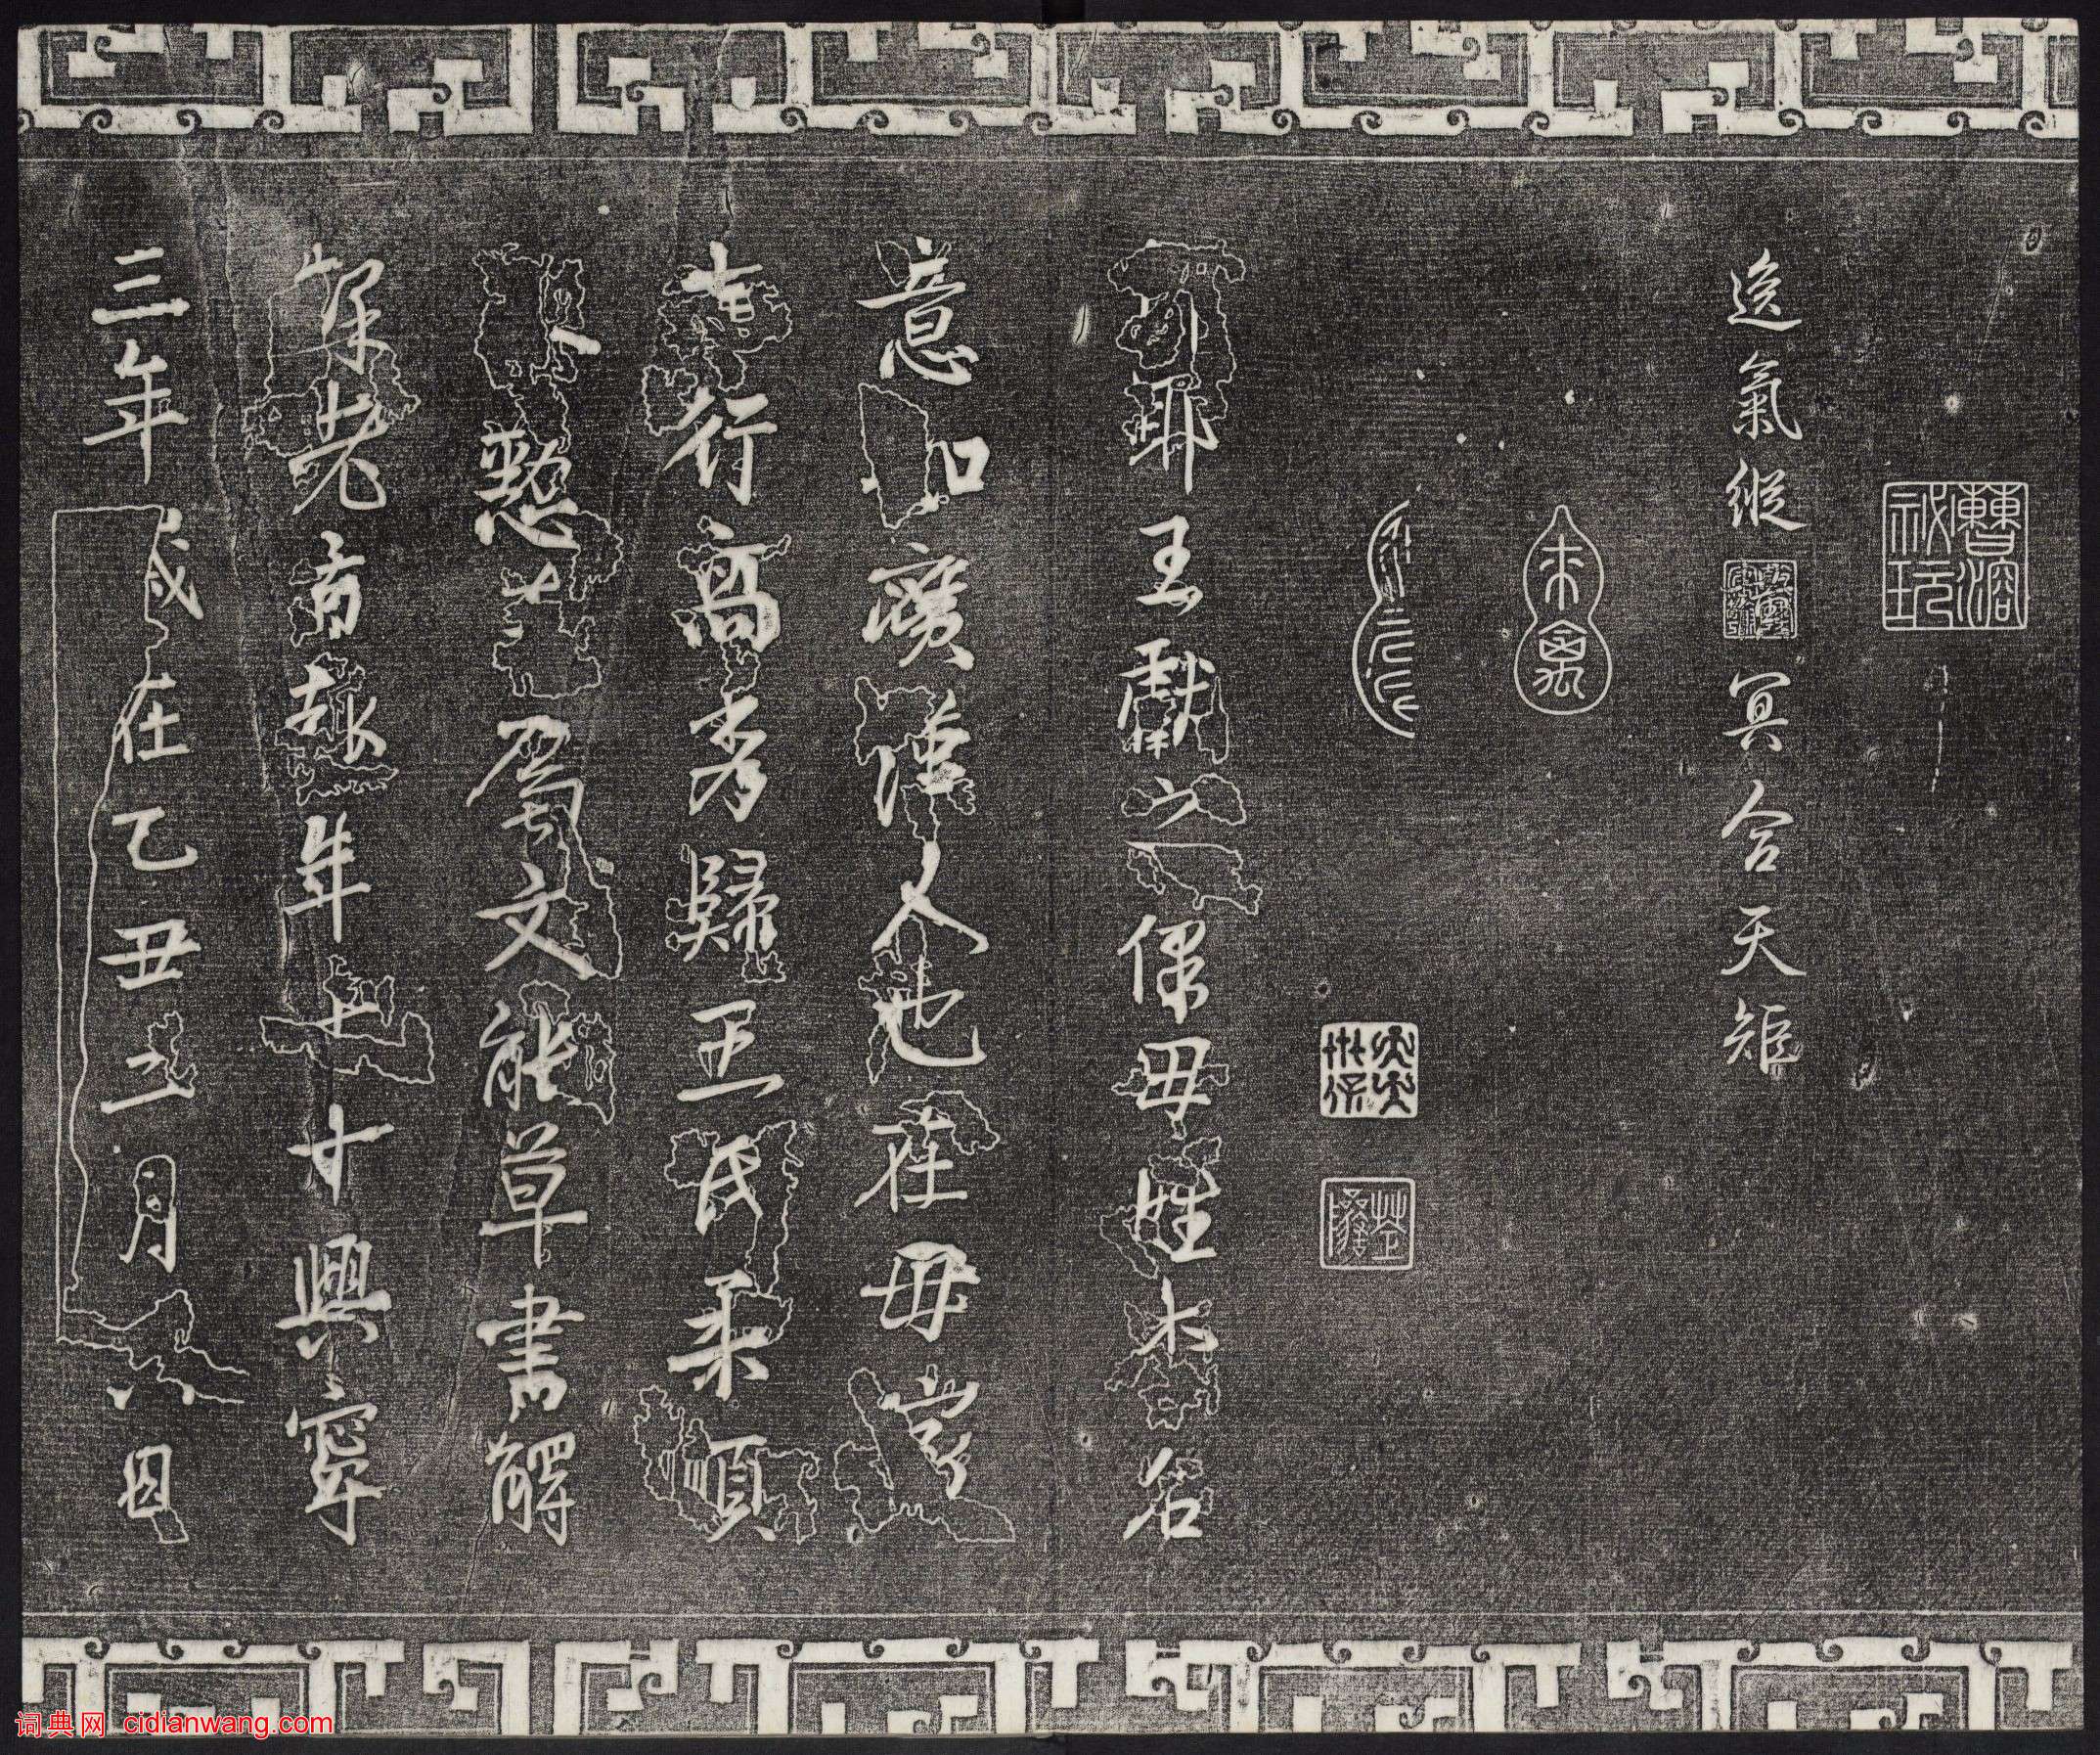 曹溶秘玩
逸氣縱冥合天矩
琅耶王獻之保母姓李名
意如廣漢人也在母家
志行高秀歸王氏柔順
恭懃善屬文能草書解
釋老旨趣年七十興寧
三年歲在乙丑二月六日
词典网 cidianwang.com